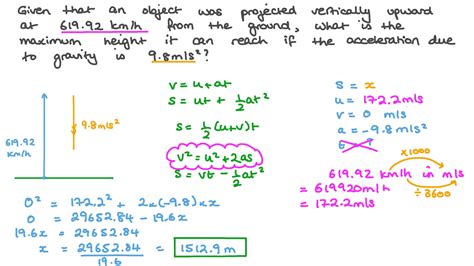 Given that an object was projected vertically upward
at 619.92 km/h from the ground, what is the
maximum height it can reach if the acceleration due
to gravity is 9.8m/s²?
619.92
km/h
9.8m/s²
v = u + at
s = ut + 1/2 at²
s = 1/2 (u+v)t
v² = u² + 2as
s = vt - 1/2 at²
s = x
u = 172.2m/s
v = 0 m/s
a = -9.8 m/s²
t
×1000
619.92 km/h in m/s
= 619920m/h
÷3600
= 172.2m/s
0² = 172.2² + 2x(-9.8)xx
0 = 29652.84 - 19.6x
19.6x = 29652.84
x = 29652.84/19.6 = 1512.9m